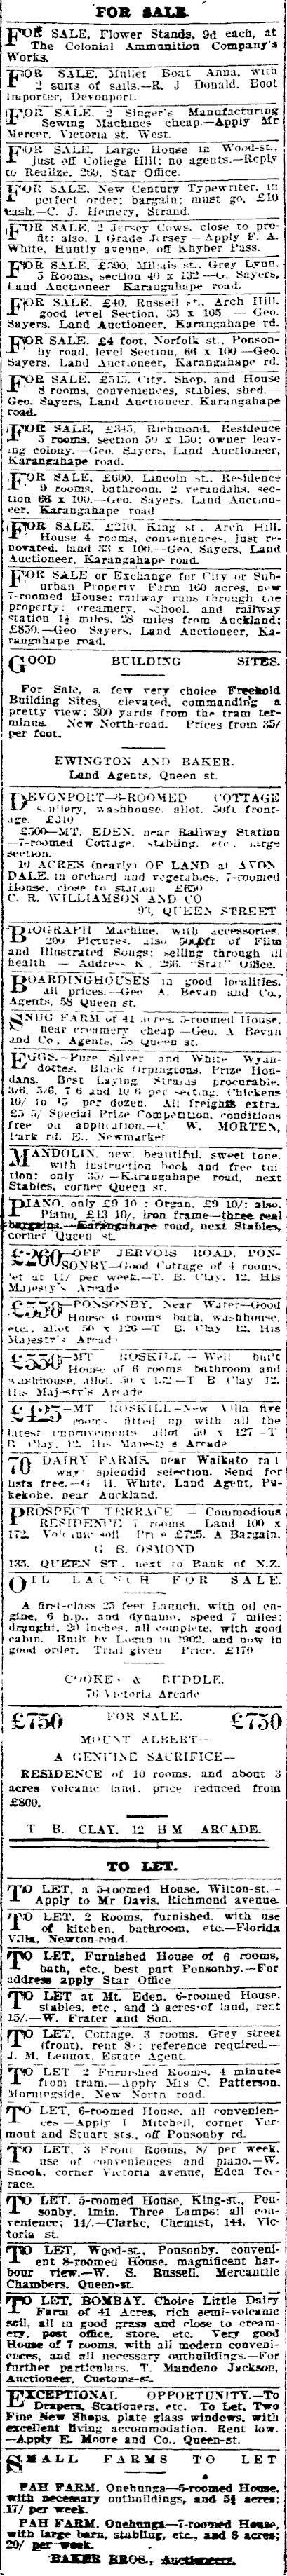 FOR SALE.
FOR SALE, Flower Stands, 9d each, at
The Colonial Ammunition Company's
Works.
FOR SALE. Mullet Boat Anna, with
2 suits of sails.—R. J Donald, Boot
Importer, Devonport.
FOR SALE. 2 Singer's Manufacturing
Sewing Machines cheap.—Apply Mr
Mercer, Victoria st. West.
FOR SALE, Large House in Wood-st.,
just off College Hill; no agents.—Reply
to Realize, 269, Star Office.
FOR SALE. New Century Typewriter, in
perfect order; bargain; must go, £10
cash.—C. J. Hemery, Strand.
FOR SALE. 2 Jersey Cows, close to pro-
fit; also, 1 Grade Jersey—Apply F. A.
White, Huntly avenue, off Khyber Pass.
FOR SALE, £390, Millais st., Grey Lynn.
5 Rooms, section 49 x 132—G. Sayers,
Land Auctioneer Karangahape road.
FOR SALE. £40, Russell st., Arch Hill,
good level Section, 33 x 105 — Geo.
Sayers, Land Auctioneer, Karangahape rd.
FOR SALE. £4 foot, Norfolk st., Ponson-
by road, level Section, 66 x 100—Geo.
Sayers, Land Auctioneer, Karangahape rd.
FOR SALE. £515, City, Shop, and House
8 rooms, conveniences, stables, shed.—
Geo. Sayers, Land Auctioneer, Karangahape
road.
FOR SALE, £345, Richmond, Residence
5 rooms, section 50 x 150; owner leav-
ing colony.—Geo. Sayers, Land Auctioneer,
Karangahape road.
FOR SALE, £600, Lincoln st., Residence
9 rooms, bathroom, 2 verandahs, sec-
tion 66 x 100.—Geo. Sayers, Land Auction-
eer, Karangahape road
FOR SALE, £210, King st, Arch Hill,
House 4 rooms, conveniences, just re-
novated, land 33 x 100.—Geo. Sayers, Land
Auctioneer, Karangahape road.
FOR SALE or Exchange for City or Sub-
urban Property Farm 160 acres, new
7-roomed House; railway runs through the
property; creamery, school, and railway
station 1½ miles, 28 miles from Auckland;
£850.—Geo Sayers, Land Auctioneer, Ka-
rangahape road.
GOOD BUILDING SITES.
For Sale, a few very choice Freehold
Building Sites, elevated, commanding a
pretty view; 300 yards from the tram ter-
minus. New North-road. Prices from 35/
per foot.
EWINGTON AND BAKER,
Land Agents, Queen st.
DEVONPORT—6-ROOMED COTTAGE
scullery, washhouse, allot. 50ft front-
age. £310
£500—MT. EDEN, near Railway Station
—7-roomed Cottage, stabling, etc, large
section.
10 ACRES (nearly) OF LAND at AVON
DALE, in orchard and vegetables, 7-roomed
House, close to station £650
C. R. WILLIAMSON AND CO
QUEEN STREET
BIOGRAPH Machine, with accessories,
200 Pictures, also 500ft of Film
and Illustrated Songs; selling through ill
health — Address K, 266, "Star" Office.
BOARDINGHOUSES in good localities,
all prices.—Geo A. Bevan and Co.,
Agents, 58 Queen st.
SNUG FARM of 41 acres, 5-roomed House,
near creamery cheap—Geo. A Bevan
and Co, Agents, 58 Queen st.
EGGS.—Pure Silver and White Wyan-
dottes, Black Orpingtons, Prize Hou-
dans. Best Laying Strains procurable.
3/6, 5/6, 7 6 and 10 6 per setting. Chickens
10/ to 15 per dozen. All freights extra.
£5 5/ Special Prize Competition, conditions
free on application.—C W. MORTEN,
Park rd. E., Newmarket
MANDOLIN, new, beautiful, sweet tone,
with instruction book and free tui
tion; only 35/—Karangahape road, next
Stables, corner Queen st.
PIANO, only £9 10; Organ, £9 10/; also,
Piano, £13 10/, iron frame—three real
bargains.—Karangahape road, next Stables,
corner Queen st.
£260—OFF JERVOIS ROAD, PON-
SONBY—Good Cottage of 4 rooms,
let at 11/ per week.—T. B. Clay. 12, His
Majesty's Arcade
£550—PONSONBY, Near Water—Good
House 6 rooms bath, washhouse,
etc., allot 50 x 126—T B. Clay 12, His
Majesty's Arcade
£550—MT ROSKILL — Well built
House of 6 rooms bathroom and
washhouse, allot. 50 x 132—T B Clay 12,
His Majesty's Arcade
£425—MT ROSKILL—New Villa five
rooms fitted up with all the
latest improvements allot 50 x 127—T
B. Clay, 12, His Majesty's Arcade
70 DAIRY FARMS, near Waikato rail
way; splendid selection. Send for
lists free.—G H. White, Land Agent, Pu-
kekohe, near Auckland.
PROSPECT TERRACE — Commodious
RESIDENCE 7 rooms Land 100 x
172. Volcanic soil Price £725. A Bargain.
G B. OSMOND
135, QUEEN ST, next to Bank of N.Z.
OIL LAUNCH FOR SALE.
A first-class 25 feet Launch, with oil en-
gine, 6 h.p., and dynamo, speed 7 miles;
draught, 20 inches, all complete, with good
cabin. Built by Logan in 1902, and now in
good order. Trial given Price, £170
COOKE & BUDDLE,
76 Victoria Arcade
£750 FOR SALE. £750
MOUNT ALBERT—
A GENUINE SACRIFICE—
RESIDENCE of 10 rooms, and about 3
acres volcanic land, price reduced from
£800.
T B. CLAY, 12 H M ARCADE.
TO LET.
TO LET, a 5-roomed House, Wilton-st.—
Apply to Mr Davis, Richmond avenue.
TO LET, 2 Rooms, furnished, with use
of kitchen, bathroom, etc.—Florida
Villa, Newton-road.
TO LET, Furnished House of 6 rooms,
bath, etc., best part Ponsonby.—For
address apply Star Office
TO LET at Mt. Eden, 6-roomed House,
stables, etc, and 3 acres of land, rent
15/.—W. Frater and Son.
TO LET, Cottage, 3 rooms, Grey street
(front), rent 8/; reference required.—
J. M. Lennox, Estate Agent.
TO LET 2 Furnished Rooms, 4 minutes
from tram.—Apply Mrs C. Patterson,
Morningside, New North road.
TO LET, 6-roomed House, all convenien-
ces—Apply I Mitchell, corner Ver-
mont and Stuart sts., off Ponsonby rd.
TO LET, 3 Front Rooms, 8/ per week,
use of conveniences and piano.—W.
Snook, corner Victoria avenue, Eden Ter-
race.
TO LET, 5-roomed House, King-st., Pon-
sonby, 1min. Three Lamps; all con-
venience; 14/.—Clarke, Chemist, 144, Vic-
toria st.
TO LET, Wood-st., Ponsonby, conveni-
ent 8-roomed House, magnificent har-
bour view.—W. S. Russell, Mercantile
Chambers, Queen-st.
TO LET, BOMBAY, Choice Little Dairy
Farm of 41 Acres, rich semi-volcanic
soil, all in good grass and close to cream-
ery, post office, store, etc. Very good
House of 7 rooms, with all modern conveni-
ences, and all necessary outbuildings.—For
further particulars, T. Mandeno Jackson,
Auctioneer, Customs-st.
EXCEPTIONAL OPPORTUNITY.—To
Drapers, Stationers, etc. To Let, Two
Fine New Shops, plate glass windows, with
excellent living accommodation. Rent low.
—Apply E. Moore and Co., Queen-st.
SMALL FARMS TO LET
PAH FARM, Onehunga—5-roomed House,
with necessary outbuildings, and 5½ acres;
17/ per week.
PAH FARM, Onehunga—7-roomed House,
with large barn, stabling, etc., and 8 acres;
20/ per week.
BAKER BROS., Auctioneers.